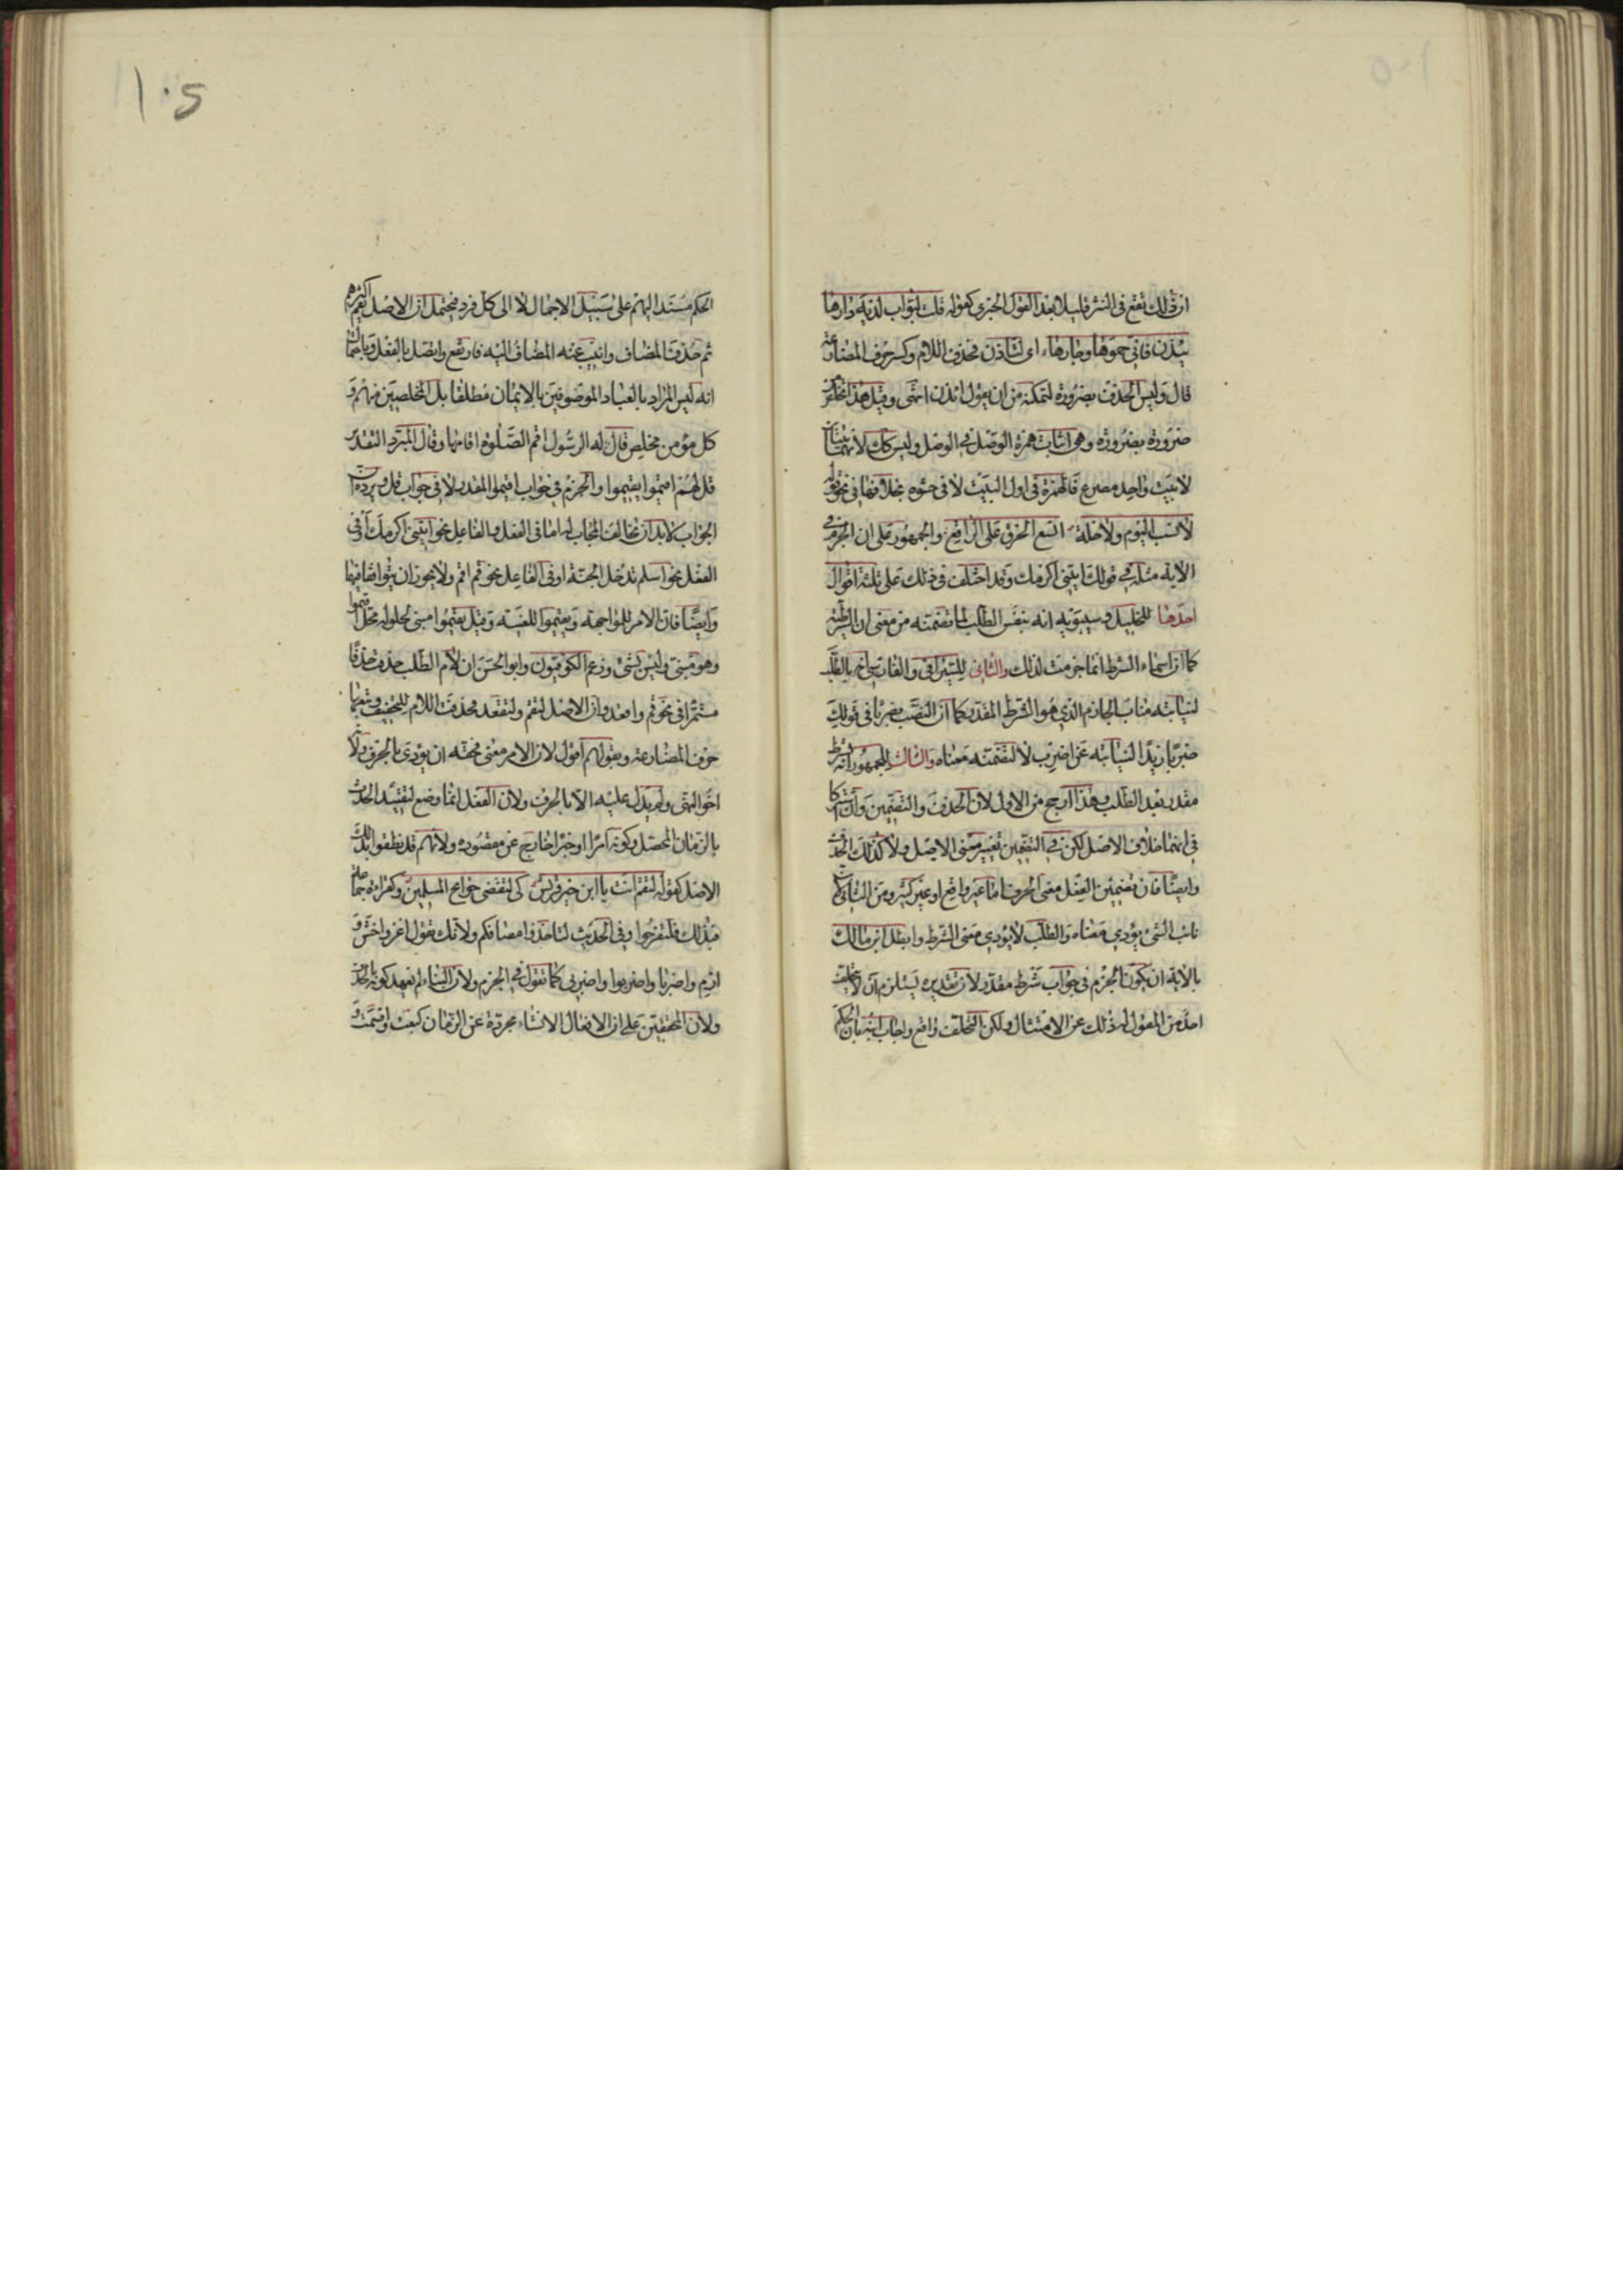 ان ذلك يقع فى النثر قليلا بعد القول الخبرى كقوله قلت لبواب لديه دارها
تيذن فانى حموها وجارها اى لتاذن فحذف اللام وكسر حرف المضارعة
قال وليس الحذف بضرورة لتمكنه من ان يقول ائذن انتهى وقيل هذا تخلص
ضرورة بضرورة وهى اثبات همزة الوصل فى الوصل وليس كذلك لانهما بيتان
لا بيت واحد مصرع فالهمزة فى اول البيت لا فى حشوه بخلافها فى نحو قوله
لا نسب اليوم ولا خلة اتسع الخرق على الراقع والجمهور على ان الجزم فى
الاية مثله فى قولك ايتنى اكرمك وقد اختلف فى ذلك على ثلثة اقوال
احدها للخليل وسيبويه انه بنفس الطلب لما تضمنه من معنى ان الشرطية
كما ان اسماء الشرط انما جزمت لذلك والثانى للسيرافى والفارسى انه بالطلب
لنيابته مناب الجازم الذى هو الشرط المقدر كما ان النصب بضربا فى قولك
ضربا زيدا لنيابته عن اضرب لا لتضمنه معناه والثالث للجمهور انه بشرط
مقدر بعد الطلب وهذا ارجح من الاول لان الحذف والتضمين وان اشتركا
فى انهما خلاف الاصل لكن فى التضمين تغيير معنى الاصل ولا كذلك الحذف
وايضا فان تضمين الفعل معنى الحرف اما غير واقع او غير كثير ومن الثانى لان
نائب الشئ يؤدى معناه والطلب لا يؤدى معنى الشرط وابطل ابن مالك
بالاية ان يكون الجزم فى جواب شرط مقدر لان تقديره يستلزم ان لا يتخلف
احد من المقول له ذلك عن الامتثال ولكن التخلف واقع واجاب ابنه بان الحكم
الحكم مسند اليهم على سبيل الاجمال لا الى كل فرد فيحتمل ان الاصل يقم اكثرهم
ثم حذف المضاف وانيب عنه المضاف اليه فارتفع واتصل بالفعل وباحتمال
انه ليس المراد بالعباد الموصوفين بالايمان مطلقا بل المخلصين منهم و
كل مؤمن مخلص قال له الرسول اقم الصلوة اقامها وقال المبرد التقدير
قل لهم اقيموا يقيموا والجزم فى جواب اقيموا المقدر لا فى جواب قل ويرده ان
الجواب لا بد ان يخالف المجاب له اما فى الفعل والفاعل نحو ايتنى اكرمك او فى
الفعل نحو اسلم تدخل الجنة او فى الفاعل نحو قم اقم ولا يجوز ان يتوافقا فيهما
وايضا فان الامر للمواجهة ويقيموا للغيبة وقيل يقيموا مبنى لحلوله محل اقيموا
وهو مبنى وليس بشئ وزعم الكوفيون وابو الحسن ان لام الطلب حذفت حذفا
مستمرا فى نحو قم واقعد وان الاصل لتقم ولتقعد فحذفت اللام للتخفيف وتبعها
حرف المضارعة وبقولهم اقول لان الامر معنى فحقه ان يؤدى بالحرف ولانه
اخو النهى ولم يدل عليه الا بالحرف ولان الفعل انما وضع لتقييد الحدث
بالزمان المحصل وكونه امرا او خبرا خارج عن مقصوده ولانهم قد نطقوا بذلك
الاصل كقوله لتقم انت يا ابن خير قريش كى لتقضى حوائج المسلمين وكقراءة جماعة
فبذلك فلتفرحوا وفى الحديث لتاخذوا مصافكم ولانك تقول اغز واخش و
ارم واضربا واضربوا واضربى كما تقول فى الجزم ولان البناء لم يعهد كونه بالحذف
ولان المحققين على ان الافعال الانشاء مجردة عن الزمان كبعت واقسمت و